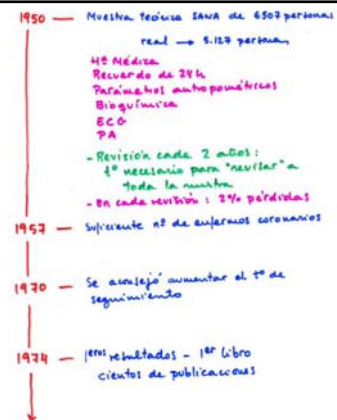 1950 — Muestra teórica SANA de 6507 personas
real → 5.127 personas
Hª Médica
Recuerdo de 24h
Parámetros antropométricos
Bioquímica
ECG
PA
- Revisión cada 2 años:
tº necesario para "revisar" a
toda la muestra
- En cada revisión: 2% pérdidas
1957 — Suficiente nº de enfermos coronarios
1970 — Se aconsejó aumentar el tº de
seguimiento
1974 — 1eros resultados - 1er libro
cientos de publicaciones